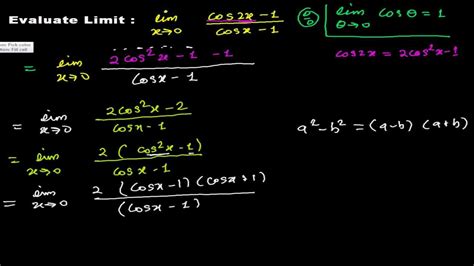 Evaluate Limit : lim x→0 (cos2x-1)/(cosx-1) (0/0)
lim θ→0 cosθ = 1
cos2x = 2cos²x-1
= lim x→0 (2cos²x-1 -1)/(cosx-1)
= lim x→0 (2cos²x-2)/(cosx-1)
a²-b² = (a-b) (a+b)
= lim x→0 2(cos²x-1)/(cosx-1)
= lim x→0 2(cosx-1)(cosx+1)/(cosx-1)